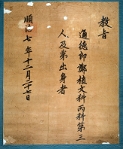 教旨
通德郎鄭植文科丙科第三
人及第出身者
順治七年十二月二十七日